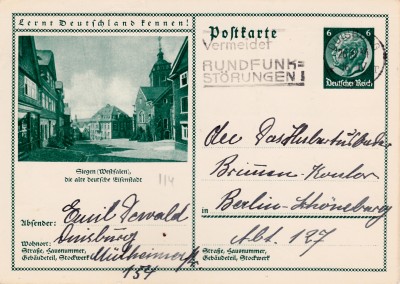 Lernt Deutschland kennen!
Postkarte
Vermeidet
RUNDFUNK=
STÖRUNGEN!
6 6
Deutsches Reich
Siegen (Westfalen),
die alte deutsche Eisenstadt
114
Absender: Emil Dewald
Wohnort: Duisburg
Straße, Hausnummer,
Gebäudeteil, Stockwerk
Mülheimerstr
154
Brunnen-Kontor
in Berlin-Schöneberg
Abt. 127
Straße, Hausnummer,
Gebäudeteil, Stockwerk